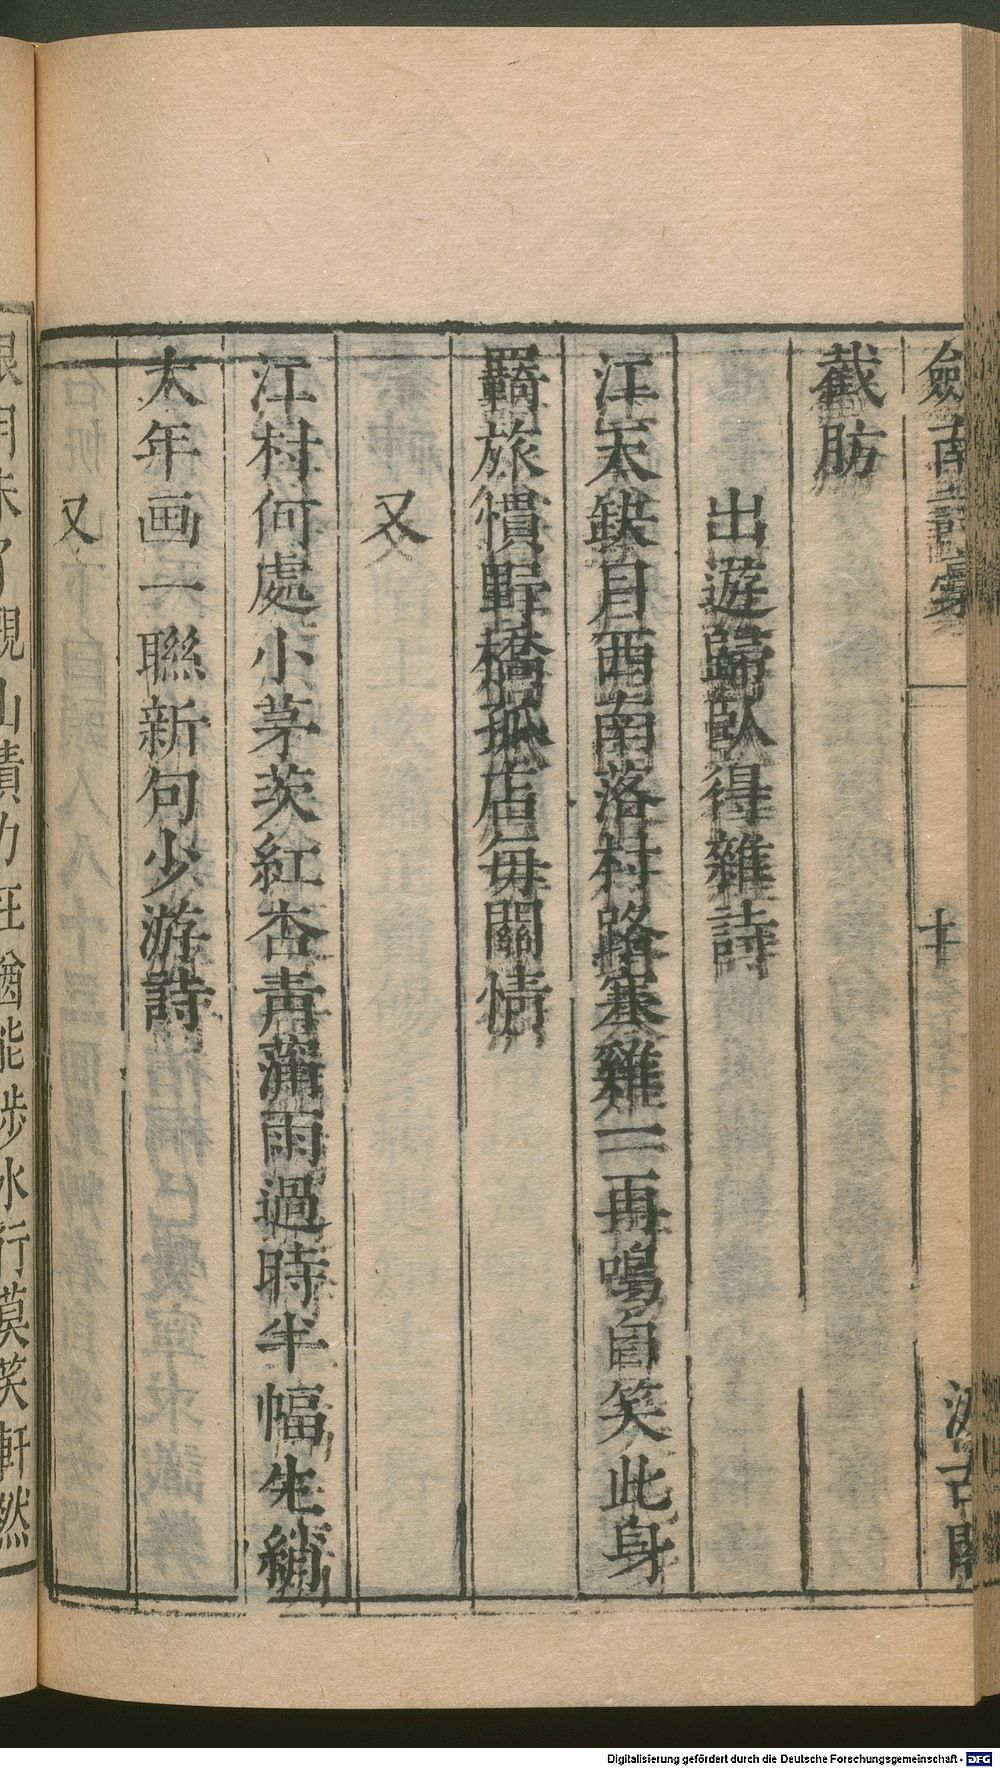 劒南詩稾
十
汲古閣
截肪
出遊歸臥得雜詩
江天缺月西南落村路寒雞一再鳴自笑此身
羇旅慣野橋孤店毎關情
又
江村何處小茅茨紅杏青蒲雨過時半幅生綃
大年画一聯新句少游詩
又
眼明未了觀山債力在猶能涉水行莫笑軒然
Digitalisierung gefördert durch die Deutsche Forschungsgemeinschaft - DFG